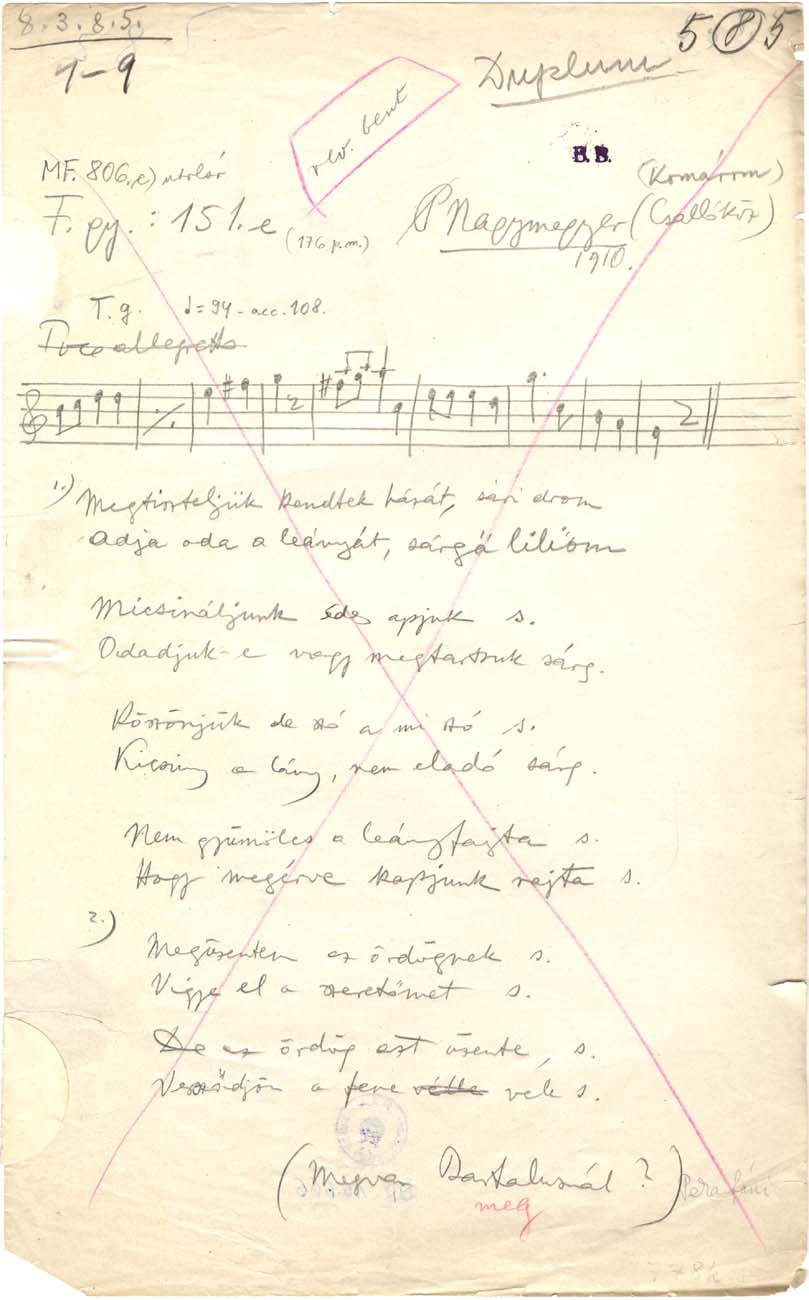 8.3.8.5.
1-9
5 8 5
Duplum
rev. bent
B. B.
MF. 806. e) utolsó
(Komárom)
F. gy.: 151. e (176 p.m.)
P Nagymegyer (Csallóköz)
1910.
T. g. ♩=94 - acc. 108.
Poco allegretto
1.) Megtiszteljük kendtek házát, sári drom
Adja oda a leányát, sárga liliom
Micsináljunk édes apjuk s.
Odadjuk-e vagy megtartsuk sárg.
Köszönjük de szó a mi szó s.
Kicsiny a lány, nem eladó sárg.
Nem gyümölcs a leányfajta s.
Hogy megérve kapjunk rajta s.
2.)
Megüzentem az ördögnek s.
Vigye el a szeretőmet s.
De az ördög azt üzente, s.
Vesződjön a fene vele s.
(Megvan Bartalusnál?)
meg